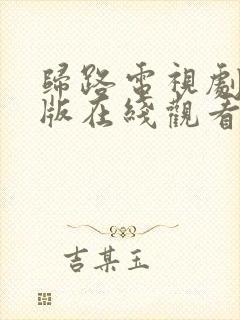 歸路電視劇
版在綫觀看
吉某玉